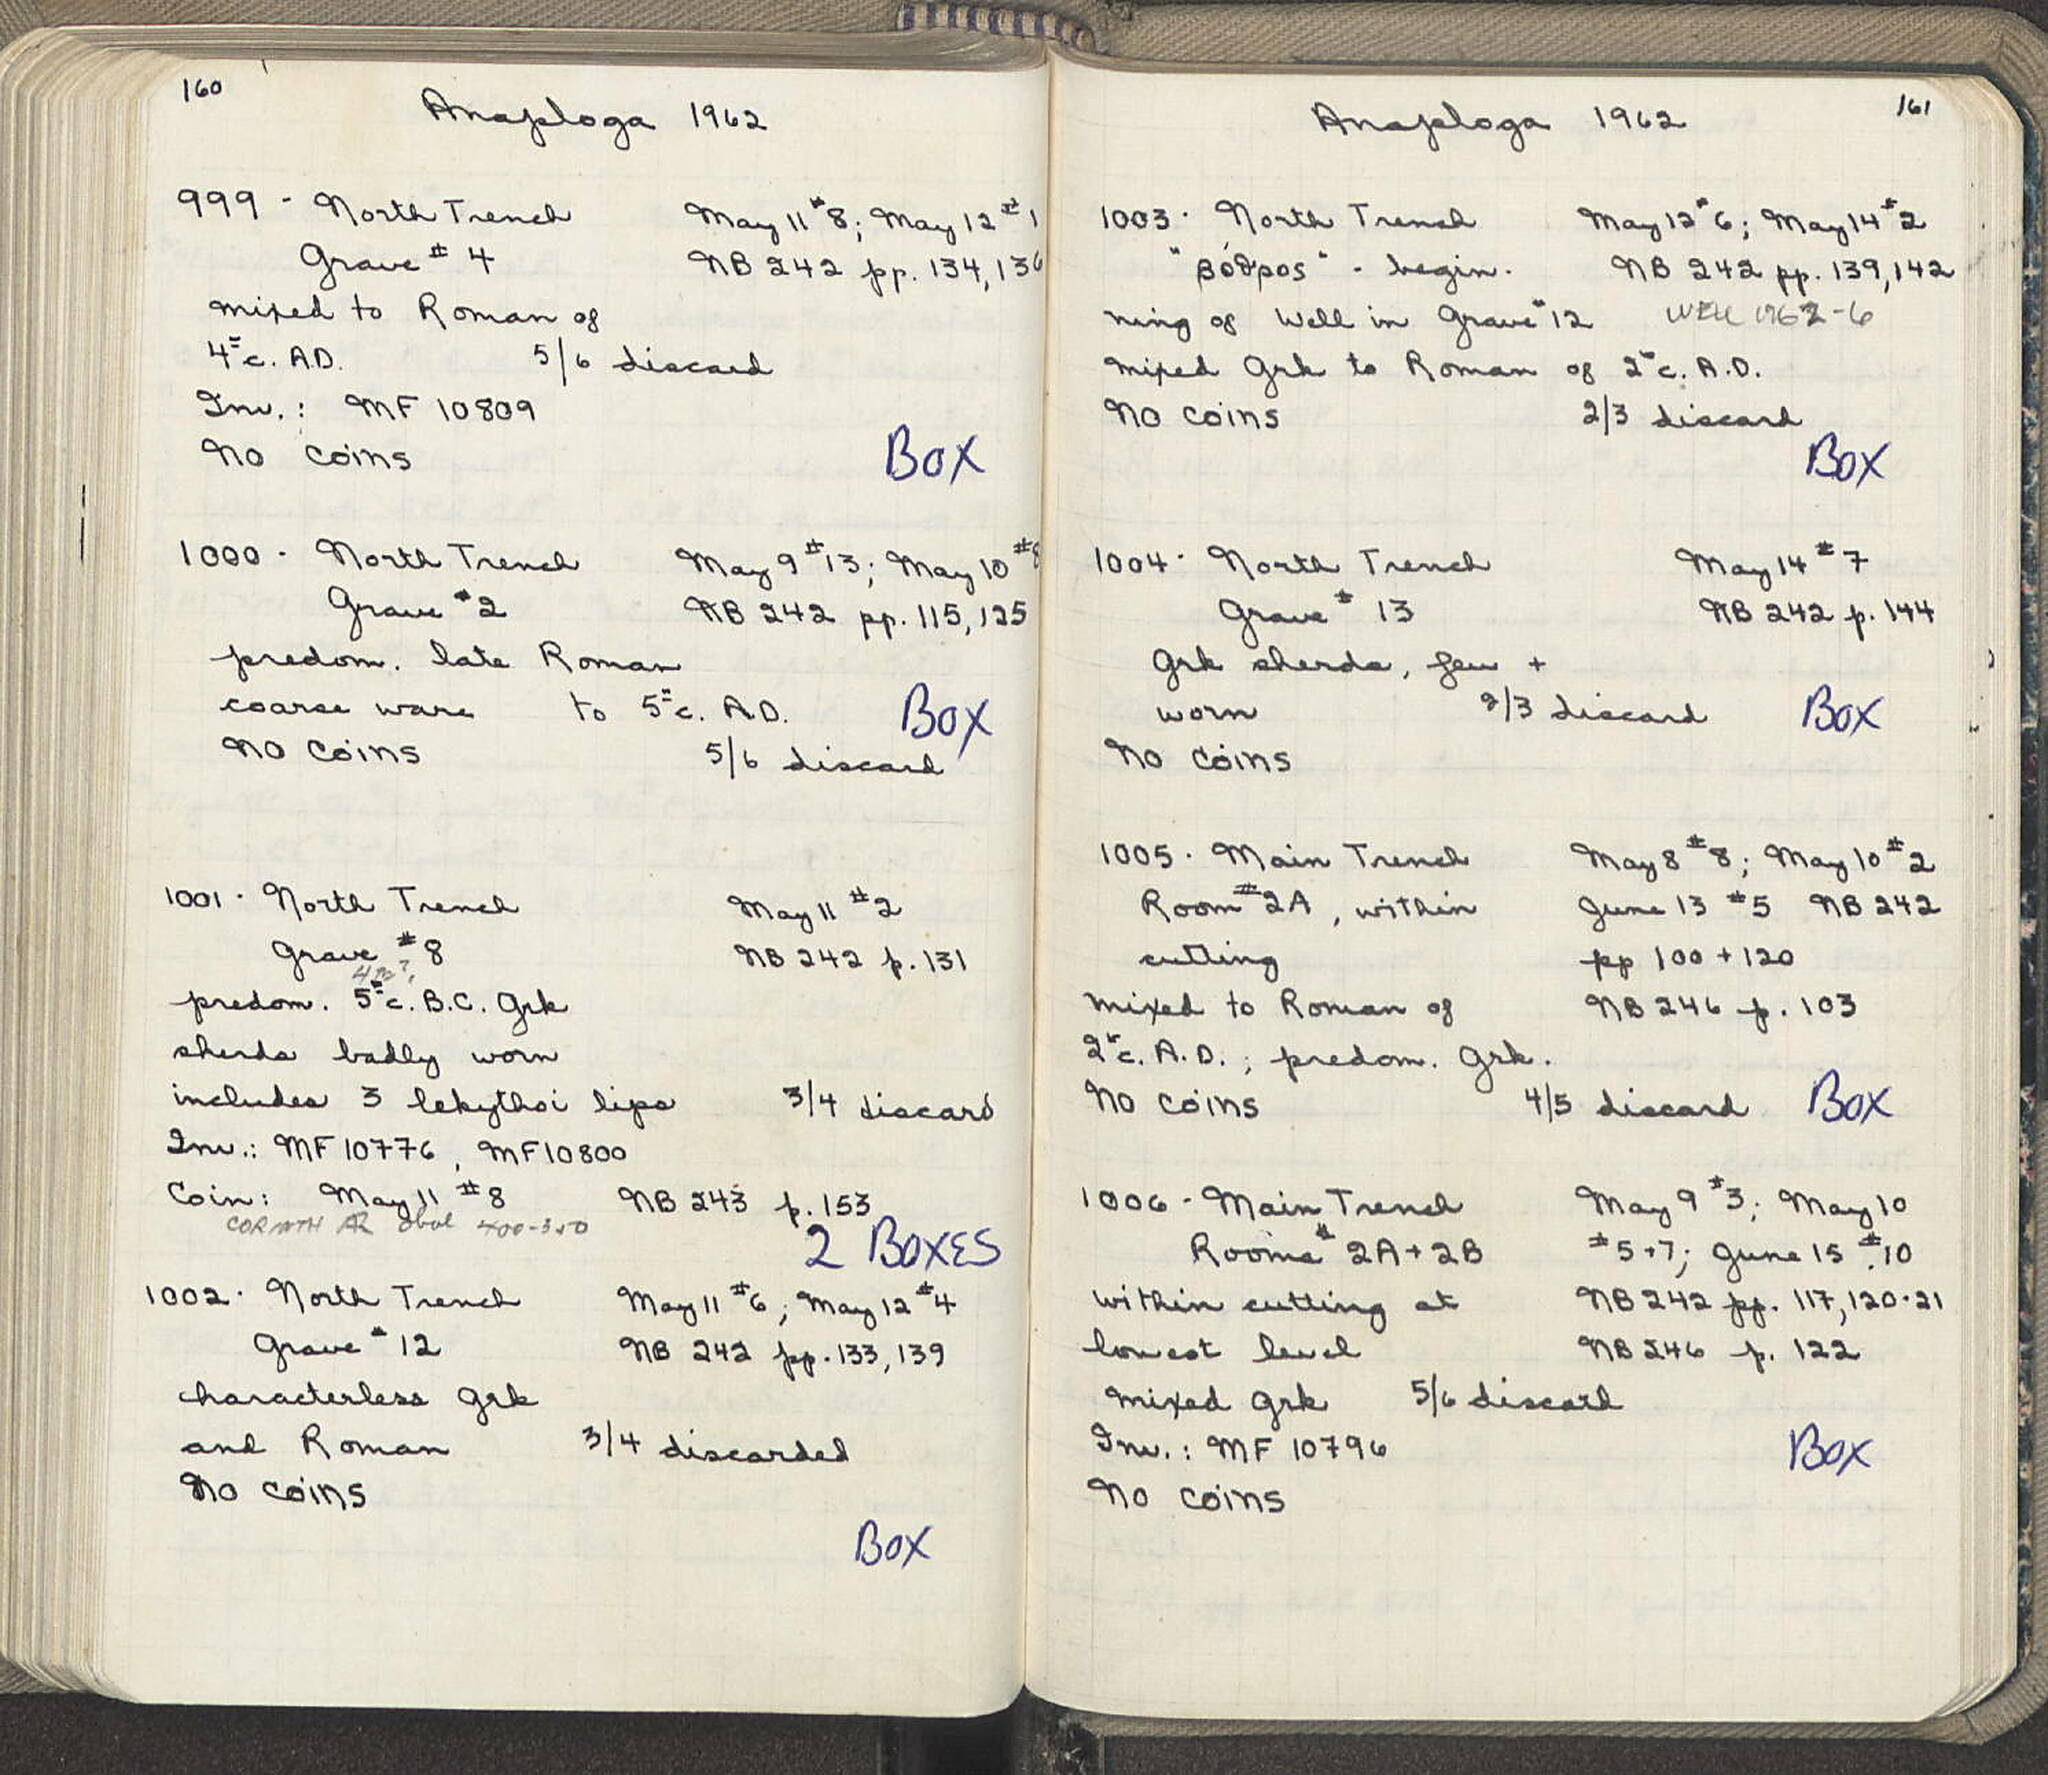 160
Anaploga 1962
999 - North Trench May 11 #8; May 12 #1
Grave # 4 NB 242 pp. 134, 136
mixed to Roman of
4th c. A.D. 5/6 discard
Inv.: MF 10809
No coins
Box
1000 - North Trench May 9 #13; May 10 #8
Grave #2 NB 242 pp. 115, 125
predom. late Roman
coarse ware to 5th c. A.D. Box
No coins 5/6 discard
1001 - North Trench May 11 #2
Grave #8 NB 242 p. 131
4th?
predom. 5th c. B.C. Grk
sherds badly worn
includes 3 lekythoi lips 3/4 discard
Inv.: MF 10776, MF 10800
Coin: May 11 #8 NB 243 p. 153
CORINTH AR obol 400-350
2 BOXES
1002 - North Trench May 11 #6; May 12 #4
Grave #12 NB 242 pp. 133, 139
characterless Grk
and Roman 3/4 discarded
No coins
Box
161
Anaploga 1962
1003 - North Trench May 12 #6; May 14 #2
"βόθρος" - begin- NB 242 pp. 139, 142
ning of Well in Grave #12 WELL 1962-6
mixed Grk to Roman of 2nd c. A.D.
No coins 2/3 discard
Box
1004 - North Trench May 14 #7
Grave # 13 NB 242 p. 144
Grk sherds, few +
worn 2/3 discard Box
No coins
1005 - Main Trench May 8 #8; May 10 #2
Room #2A, within June 13 #5 NB 242
cutting pp 100 + 120
mixed to Roman of NB 246 p. 103
2nd c. A.D.; predom. Grk.
No coins 4/5 discard Box
1006 - Main Trench May 9 #3; May 10
Rooms # 2A + 2B #5+7; June 15 #10
within cutting at NB 242 pp. 117, 120-21
lowest level NB 246 p. 122
mixed Grk 5/6 discard
Inv.: MF 10796
Box
No coins